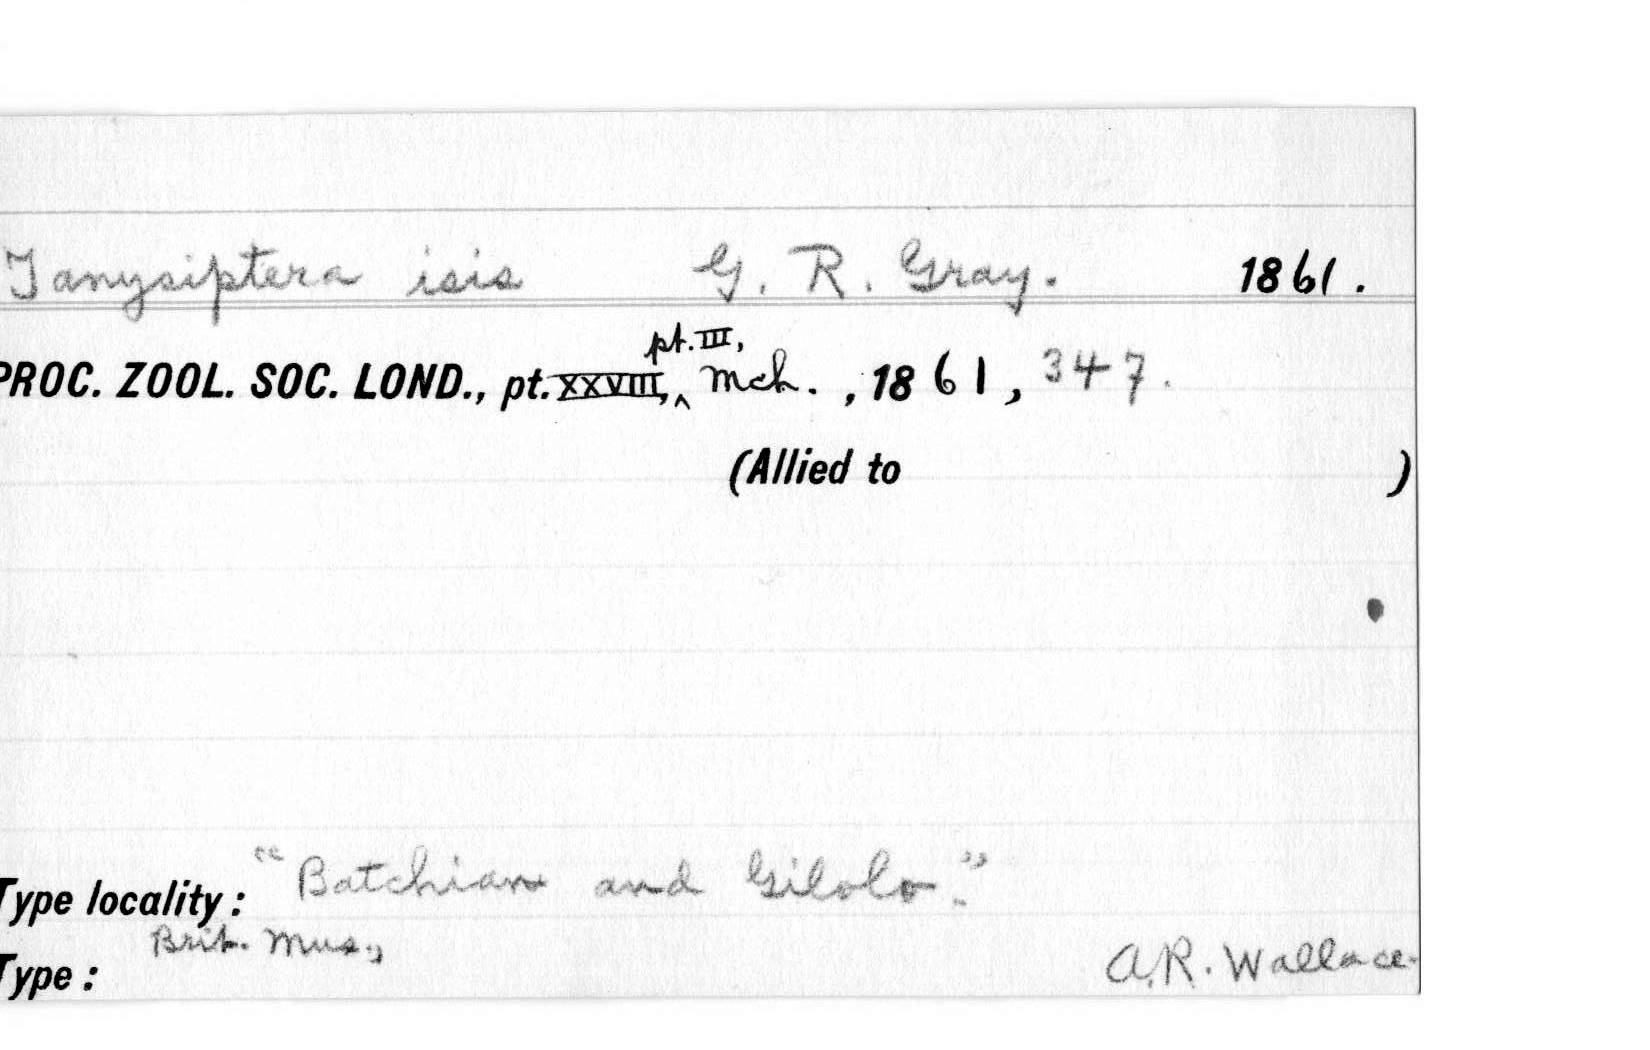 Tanysiptera isis G. R. Gray. 1861.
pt. III,
PROC. ZOOL. SOC. LOND., pt. XXVIII, ^ Mch. , 1861, 347.
(Allied to )
Type locality: "Batchian and Gilolo."
Brit. Mus.,
Type: A.R. Wallace.